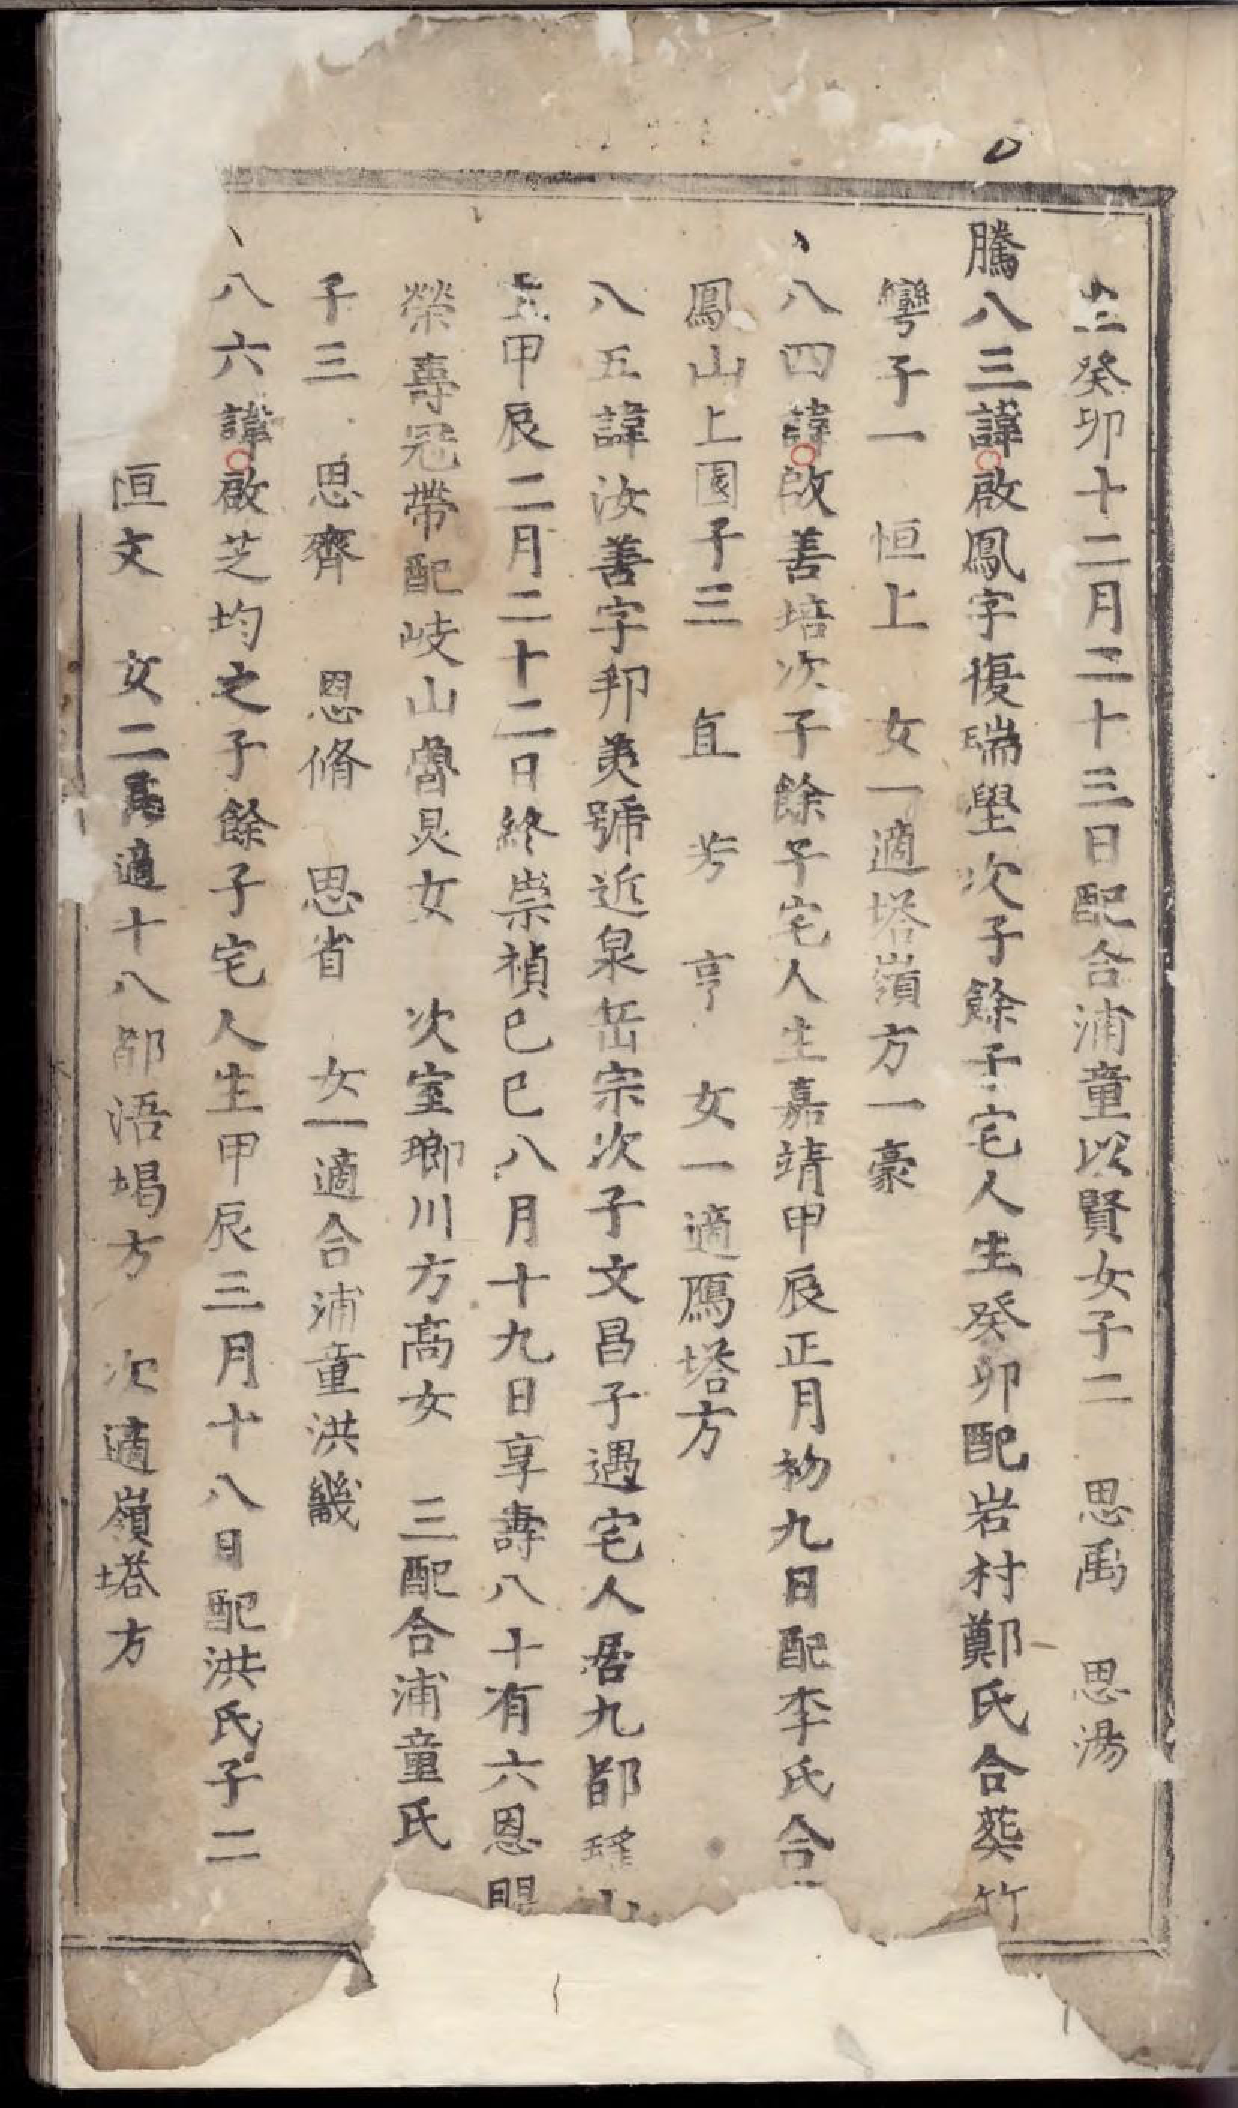 生癸卯十二月二十三日配合浦童以賢女子二　思禹　思湯
騰八三諱啟鳳字復瑞壁次子餘子宅人生癸卯配岩村鄭氏合葬竹
彎子一　恒上　女一適塔嶺方一豪
八四諱啟善培次子餘子宅人生嘉靖甲辰正月初九日配李氏合
鳳山上園子三　直　芳　亨　女一適鴈塔方
八五諱汝善字邦美號近泉岳宗次子文昌子遇宅人居九都瑤山
甲辰二月二十二日終崇禎己巳八月十九日享壽八十有六恩賜
榮壽冠帶配岐山魯炅女　次室瑯川方高女　三配合浦童氏
子三　思齊　思脩　思省　女一適合浦童洪畿
八六諱啟芝均之子餘子宅人生甲辰三月十八日配洪氏子二
恒文　女二長適十八都浯堨方　次適嶺塔方